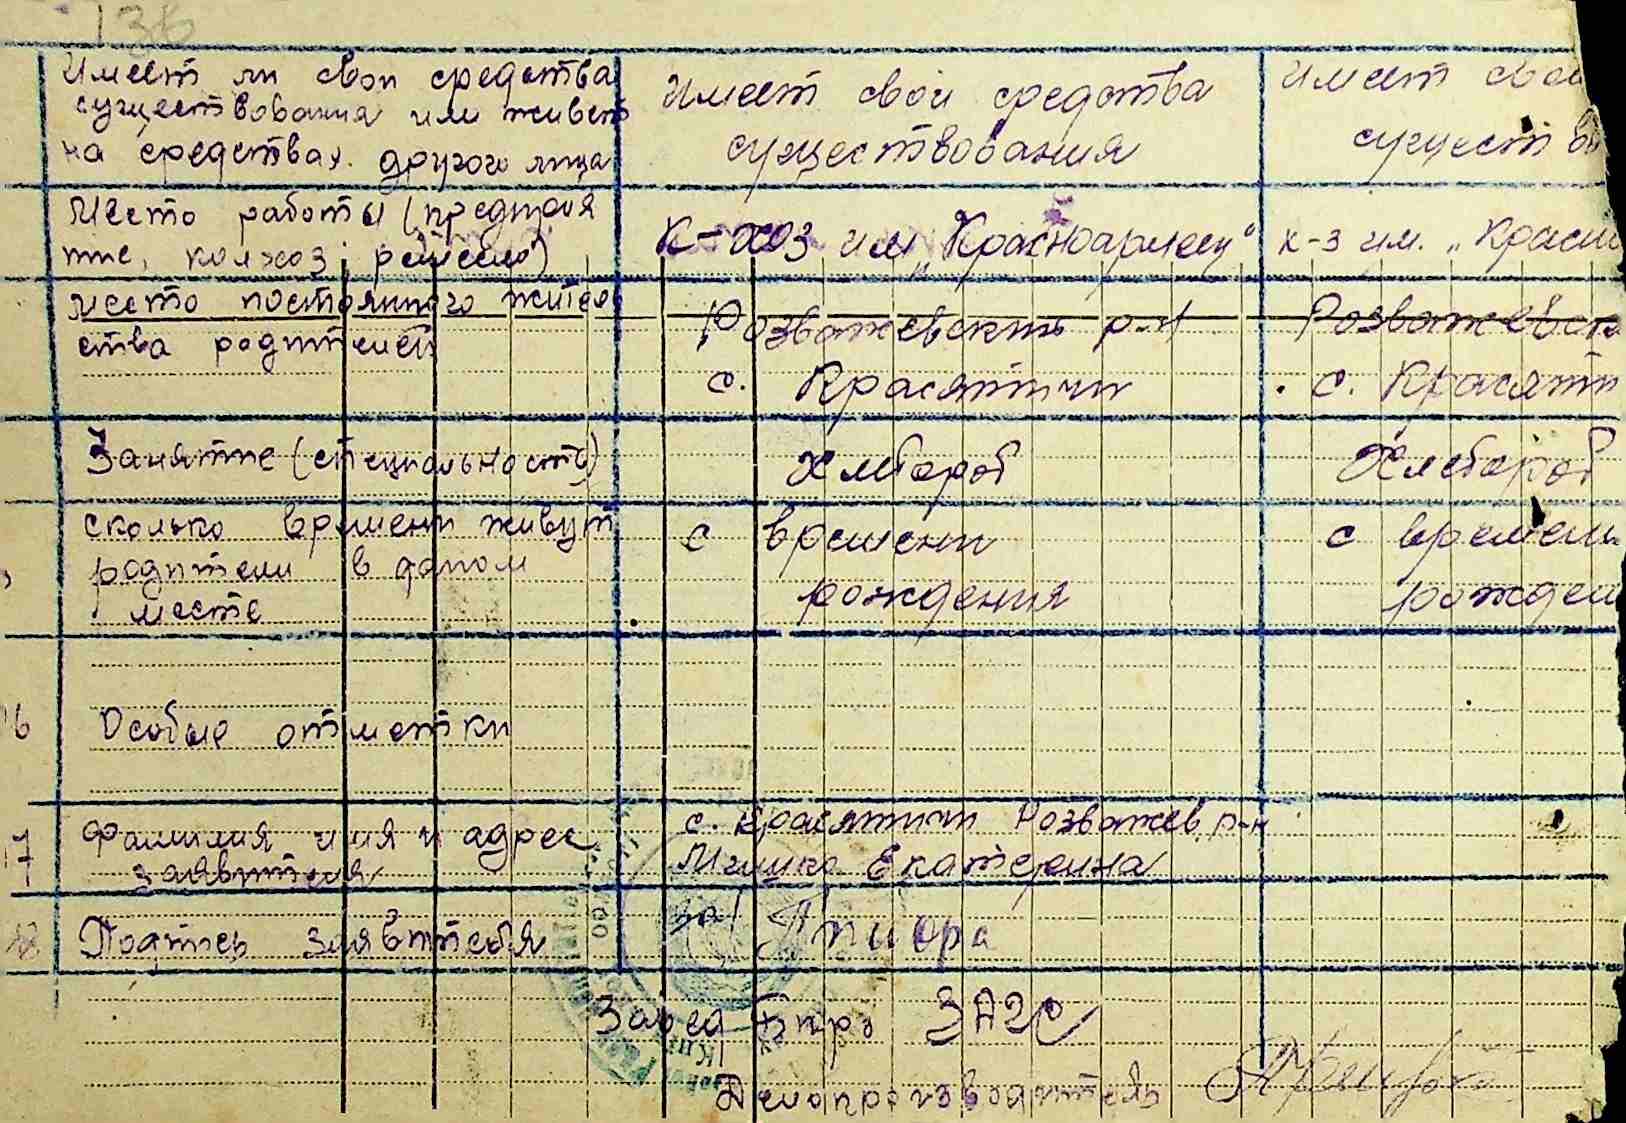 136
Имеет ли свои средства
существования или живет
на средствах другого лица
Имеет свои средства
существования
Имеет свои
существ
Место работы (предприя
тие, колхоз, ремесло)
К-хоз им „Красноармеец“
к-з им. „Красн
Место постоянного житель
ства родителей
Розважевский р-н
с. Красятичи
Розважевск
с. Красяти
Занятие (специальность)
Хлебороб
Хлебороб
сколько времени живут
родители в даном
месте
с времени
рождения
с времени
рожден
16
Особые отметки
17
Фамилия имя и адрес
заявителя
с. Красятичи Розважев. р-н
Екатерина
18
Подпись заявителя
за/
Завед Бюро ЗАГС
Делопроизводитель